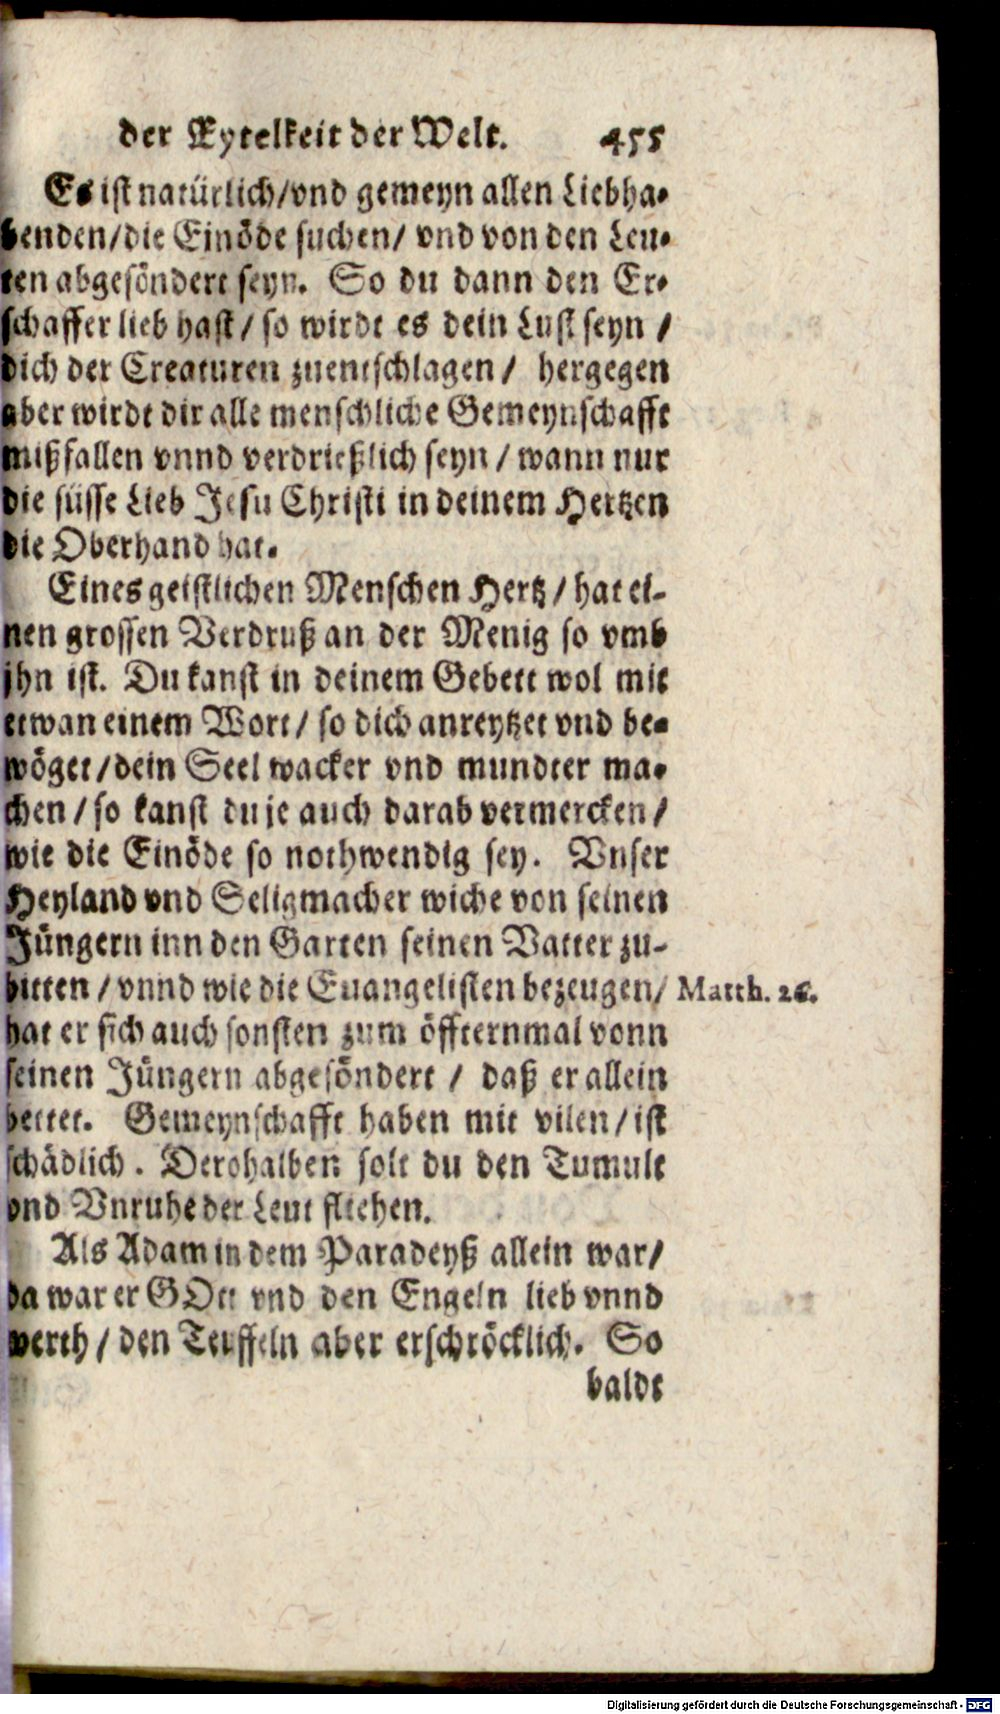 der Eytelkeit der Welt. 455
Es ist natürlich/vnd gemeyn allen Liebha-
benden/die Einöde suchen/ vnd von den Leu-
ten abgesöndert seyn. So du dann den Er-
schaffer lieb hast / so wirdt es dein Lust seyn /
dich der Creaturen zuentschlagen / hergegen
aber wirdt dir alle menschliche Gemeynschafft
mißfallen vnnd verdrießlich seyn / wann nur
die süsse Lieb Jesu Christi in deinem Hertzen
die Oberhand hat.
Eines geistlichen Menschen Hertz / hat ei-
nen grossen Verdruß an der Menig so vmb
jhn ist. Du kanst in deinem Gebett wol mit
etwan einem Wort / so dich anreytzet vnd be-
wöget / dein Seel wacker vnd mundter ma-
chen / so kanst du je auch darab vermercken /
wie die Einöde so nothwendig sey. Vnser
Heyland vnd Seligmacher wiche von seinen
Jüngern inn den Garten seinen Vatter zu-
bitten / vnnd wie die Euangelisten bezeugen / Matth. 26.
hat er sich auch sonsten zum öffternmal vonn
seinen Jüngern abgesöndert / daß er allein
bettet. Gemeynschafft haben mit vilen / ist
schädlich. Derohalben solt du den Tumult
vnd Vnruhe der Leut fliehen.
Als Adam in dem Paradeyß allein war /
da war er GOtt vnd den Engeln lieb vnnd
werth / den Teuffeln aber erschröcklich. So
baldt
Digitalisierung gefördert durch die Deutsche Forschungsgemeinschaft - DFG